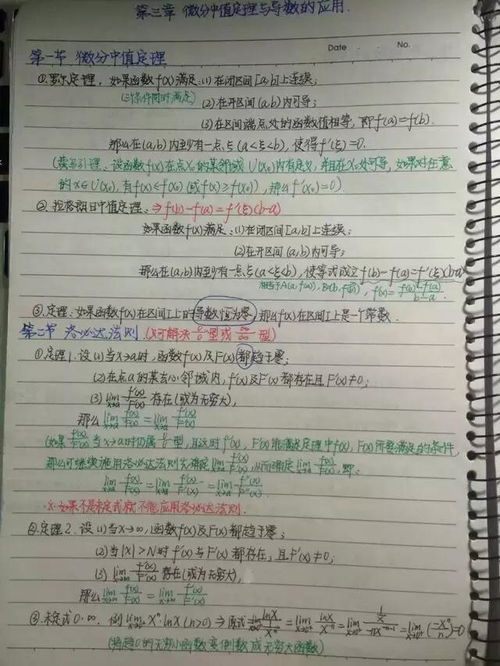 第三章 微分中值定理与导数的应用.
Date · No.
第一节 微分中值定理
①罗尔定理. 如果函数f(x)满足:(1)在闭区间[a,b]上连续;
(三条件同时满足) (2)在开区间(a,b)内可导;
(3)在区间端点处的函数值相等, 即f(a)=f(b).
那么在(a,b)内至少有一点ξ(a<ξ<b), 使得f'(ξ)=0.
(费马引理: 设函数f(x)在点X₀的某邻域U(X₀)内有定义, 并且在X₀处可导, 如果对任意
的x∈U(X₀), 有f(x)≤f(X₀) (或f(x)≥f(X₀)), 那么f'(X₀)=0)
②拉格朗日中值定理: ⇒ f(b)-f(a)=f'(ξ)(b-a)
如果函数f(x)满足:(1)在闭区间[a,b]上连续;
(2)在开区间(a,b)内可导;
那么在(a,b)内至少有一点ξ(a<ξ<b), 使等式成立f(b)-f(a)=f'(ξ)(b-a)
③定理: 如果函数f(x)在区间I上的导数恒为零, 那么f(x)在区间I上是一个常数.
第二节 洛必达法则 (只可解决 0/0 型或 ∞/∞ 型)
①定理1. 设(1)当x→a时, 函数f(x)及F(x)都趋于零;
(2)在点a的某去心邻域内, f'(x)及F'(x)都存在且F'(x)≠0;
(3) lim x→a f'(x)/F'(x) 存在(或为无穷大),
那么 lim x→a f(x)/F(x) = lim x→a f'(x)/F'(x)
(如果 f'(x)/F'(x) 当x→a时仍属 0/0 型, 且这时f'(x), F'(x)能满足定理中f(x), F(x)所要满足的条件,
那么可继续施用洛必达法则先确定 lim x→a f'(x)/F'(x), 从而确定 lim x→a f(x)/F(x), 即:
lim x→a f(x)/F(x) = lim x→a f'(x)/F'(x) = lim x→a f''(x)/F''(x)
※如果不是未定式就不能应用洛必达法则.
②定理2. 设(1)当x→∞, 函数f(x)及F(x)都趋于零;
(2)当|X|>N时f'(x)与F'(x)都存在, 且F'(x)≠0;
(3) lim x→∞ f'(x)/F'(x) 存在(或为无穷大),
那么 lim x→∞ f(x)/F(x) = lim x→∞ f'(x)/F'(x)
③未定式0·∞. 例 lim x→0⁺ xⁿ ln x (n>0) ⇒